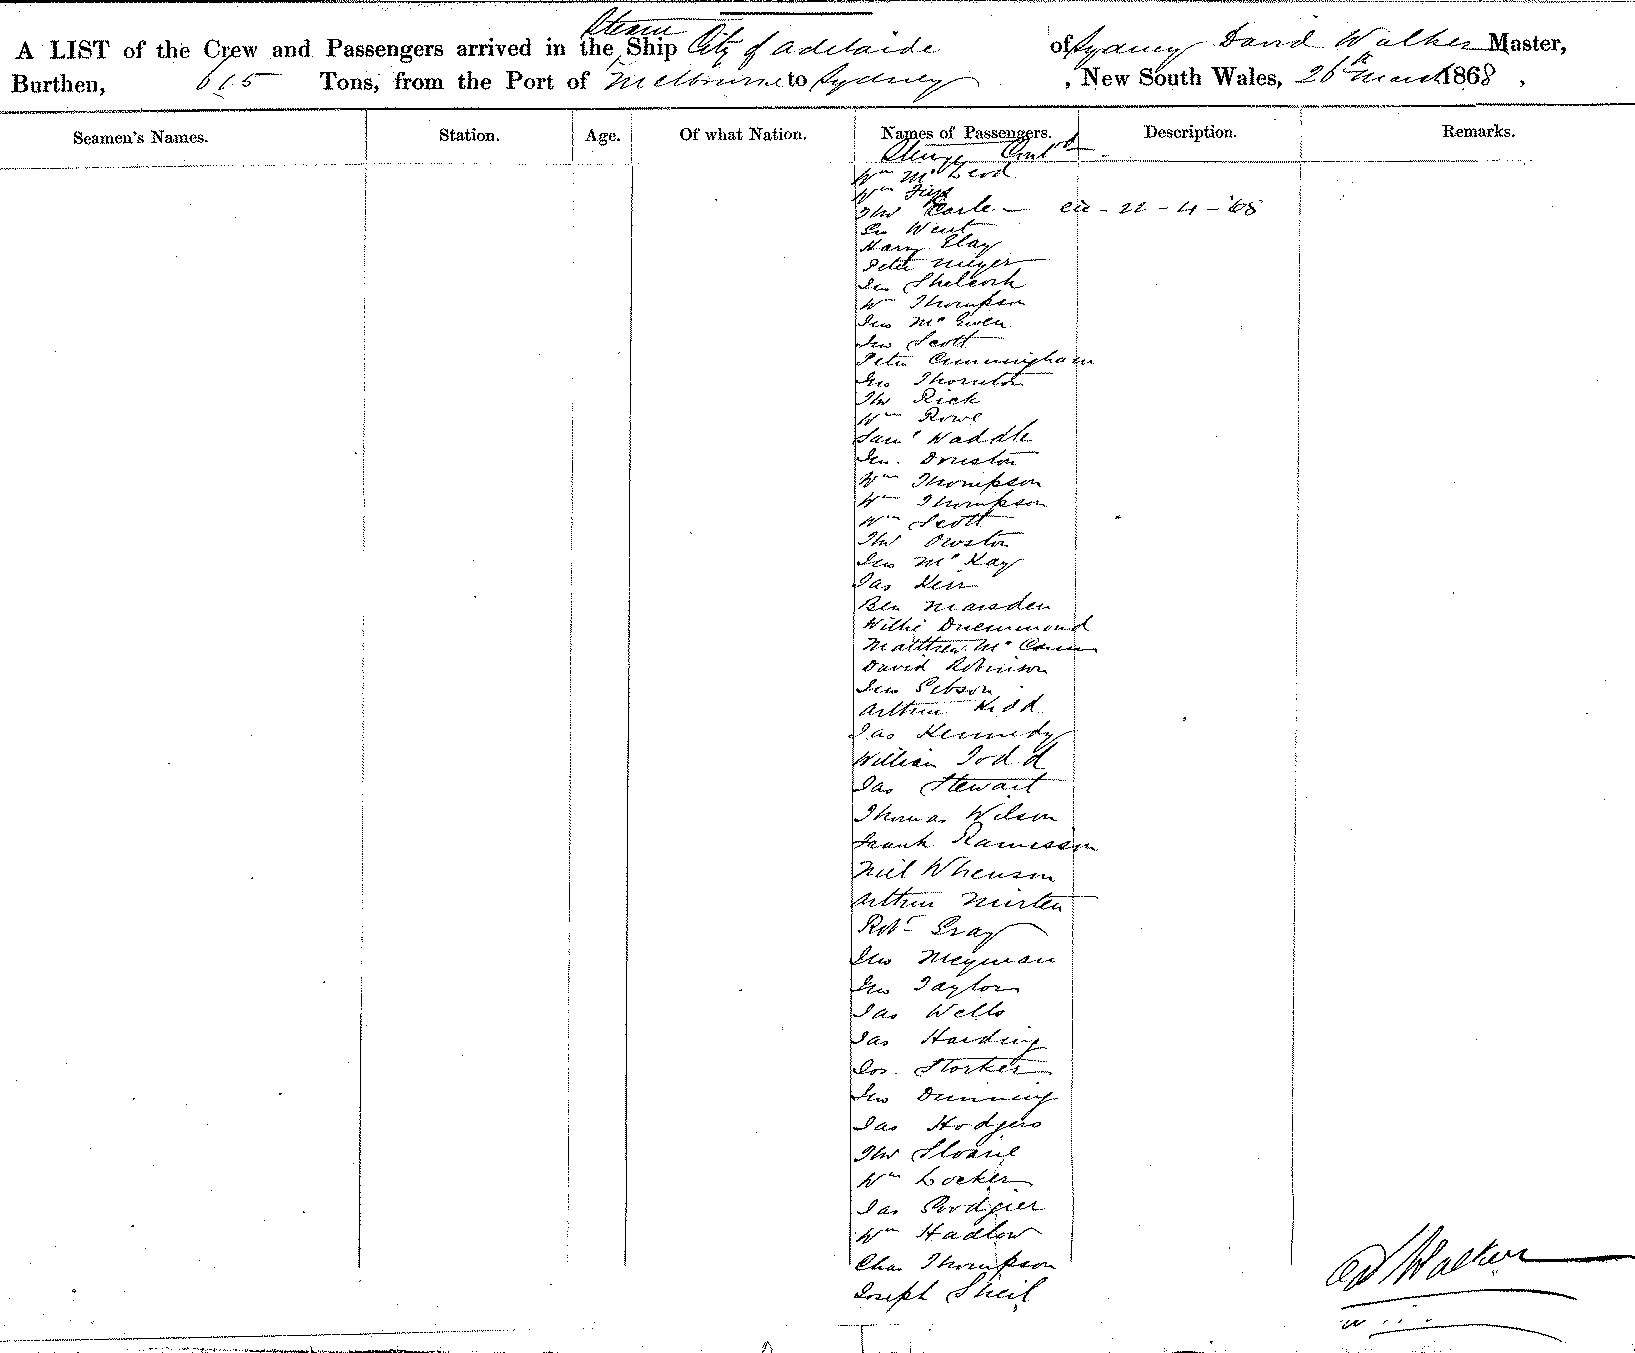 Steam
A LIST of the Crew and Passengers arrived in the Ship City of Adelaide of Sydney David Walker Master,
Burthen, 615 Tons, from the Port of Melbourne to Sydney , New South Wales, 26th March 1868 ,
Seamen's Names. Station. Age. Of what Nation. Names of Passengers. Description. Remarks.
Contd
Wm McLeod
Wm
Thos Earle — - 22 - 4 - '68
Went
Harry Clay
Peter Meyer
Jno
Wm Thompson
Jno McEwen
Jno Scott
Peter Cunningham
Jno Thornton
Thos Rick
Wm Rowe
Saml Waddle
Jno.
Wm Thompson
Wm Thompson
Wm Scott
Thos Owston
Jno McKay
Jas Kerr
Ben Marsden
Willie Drummond
Matthew Mc
David Robinson
Jno Gibson
Arthur Kidd
Jas Kennedy
William Todd
Jas Stewart
Thomas Wilson
Frank
Neil
Arthur
Robt Gray
Jno
Jno Taylor
Jas Wells
Jas Harding
Jos. Storker
Jno Dunning
Jas Hodgers
Thos Sloane
Wm Locker
Jas
Wm Hadlow
Chas Thompson
Joseph Sheil
Walker